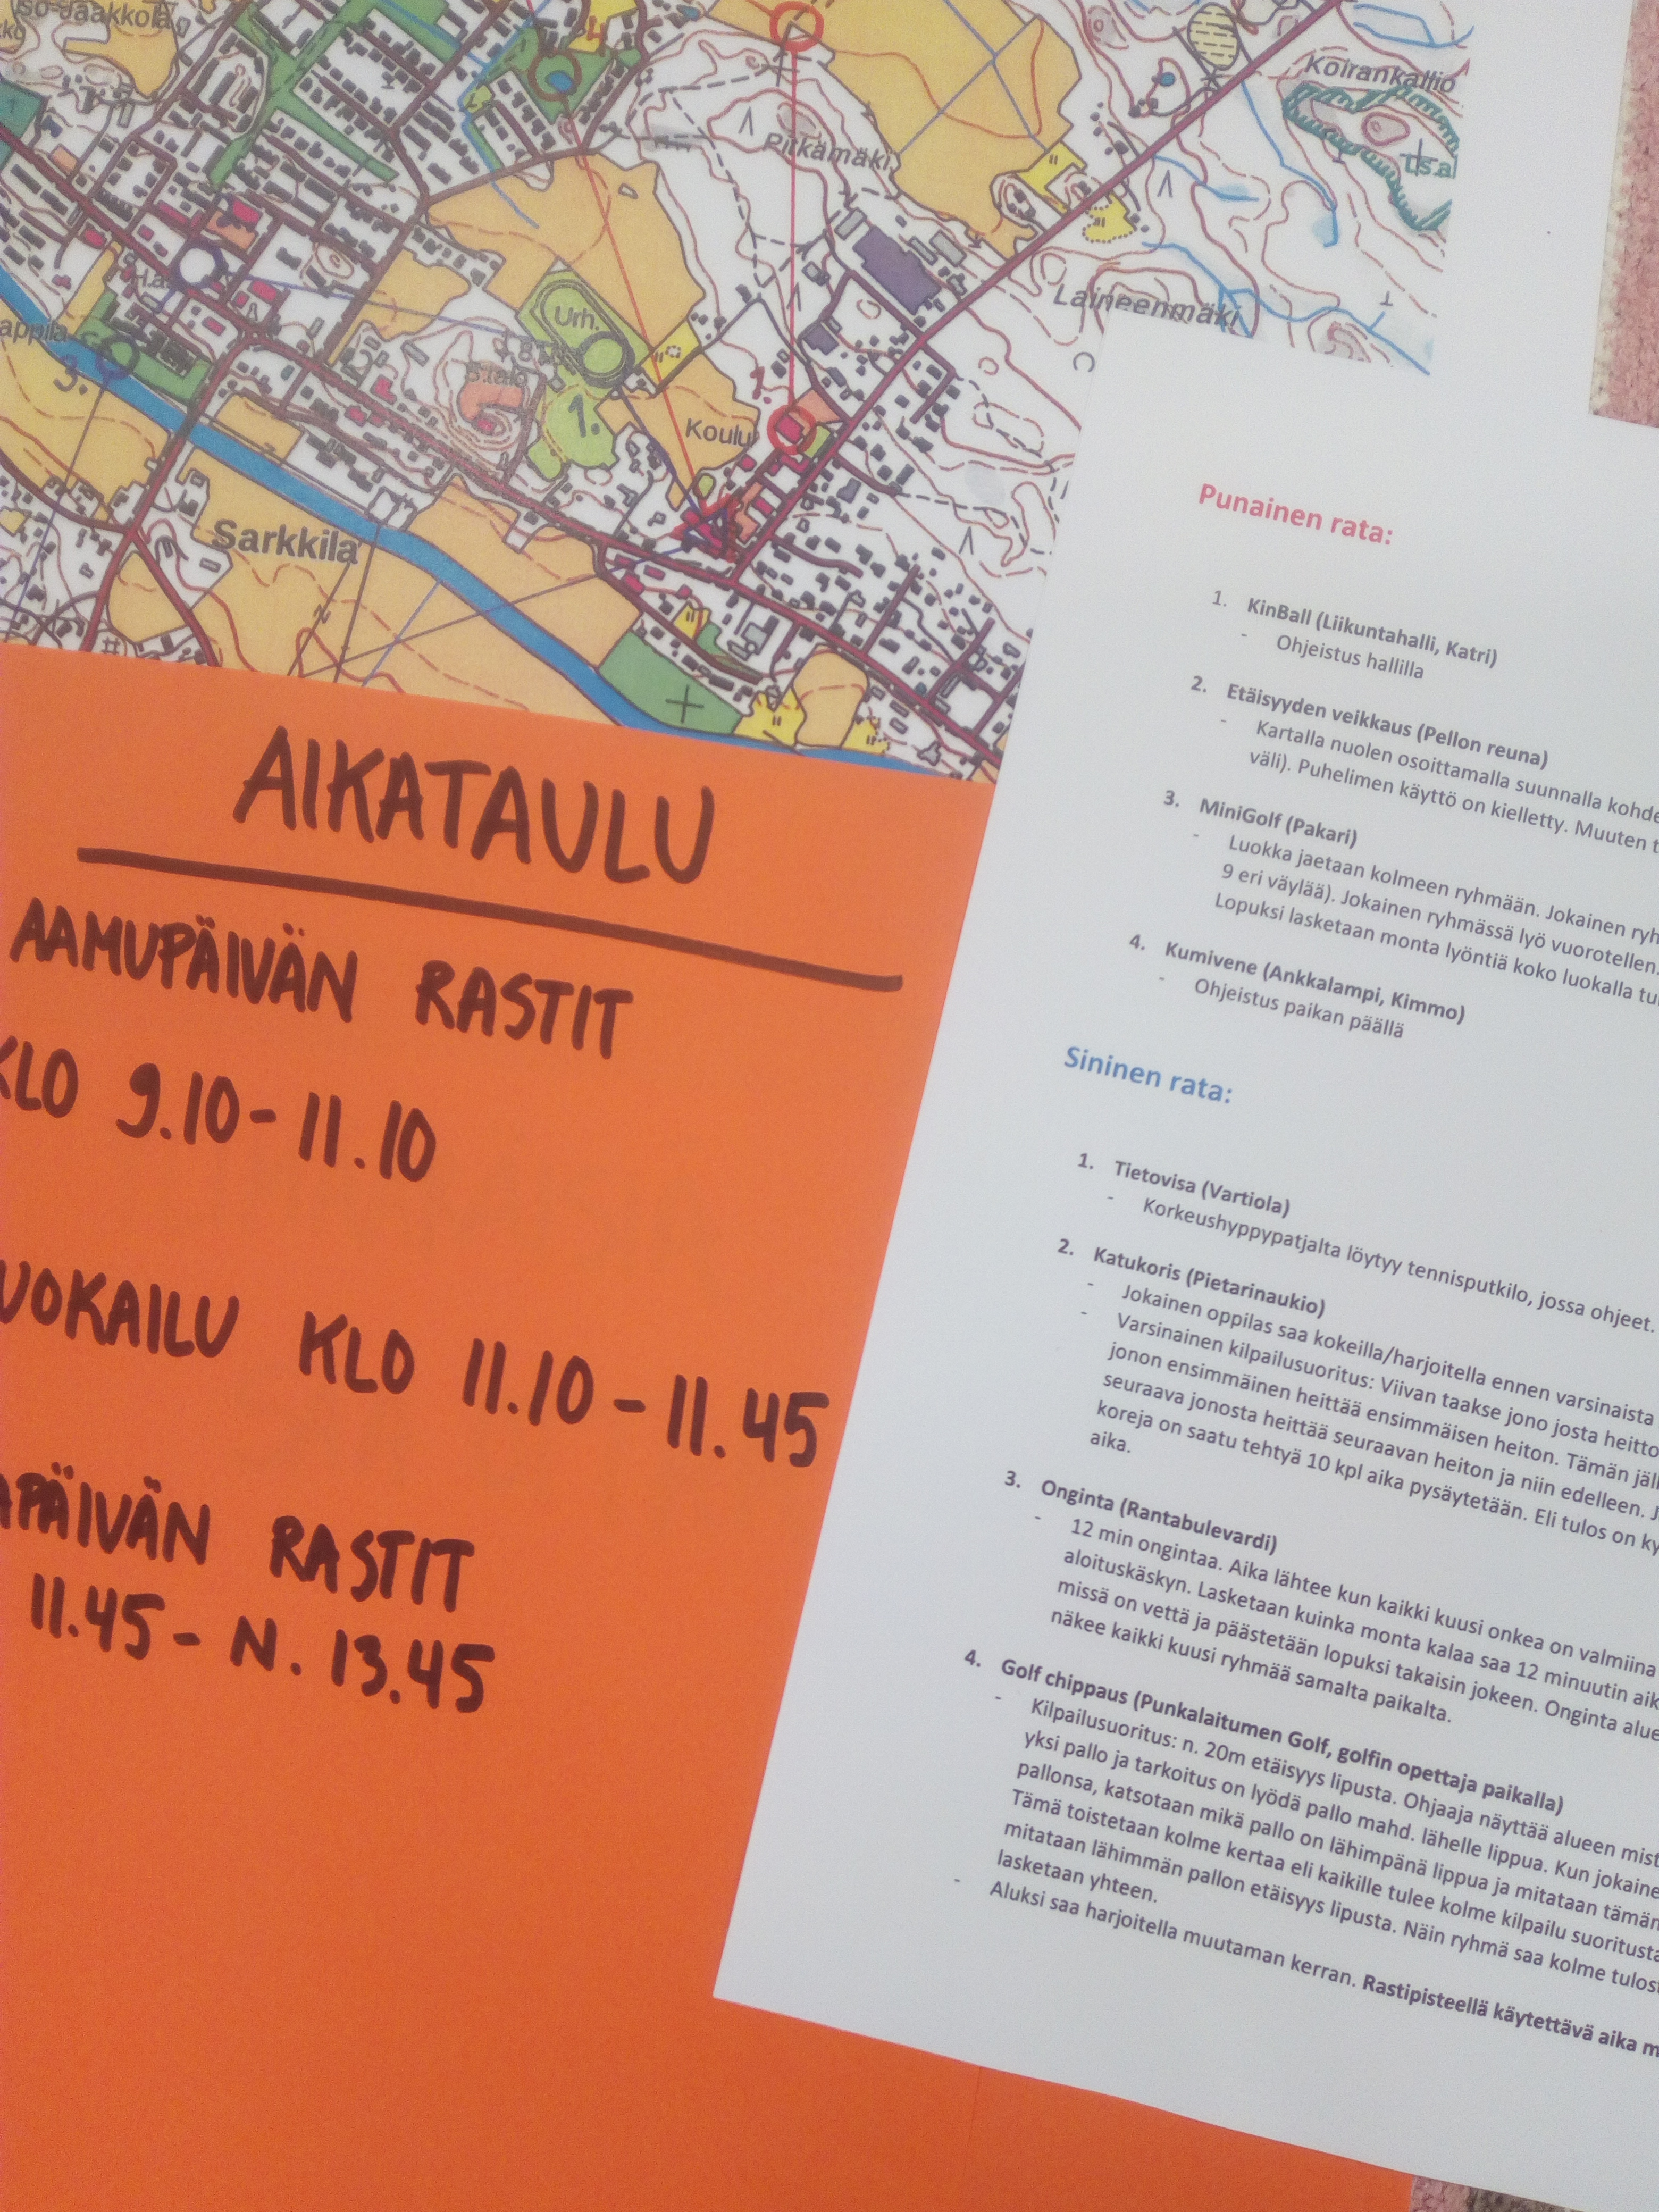 Koirankallio
Pitkämäki
ds.a
Laineenmäki
Urh.
1.
Koulu
3.
Sarkkilä
AIKATAULU
AAMUPÄIVÄN RASTIT
KLO 9.10-11.10
UOKAILU KLO 11.10-11.45
APÄIVÄN RASTIT
11.45- N. 13.45
Punainen rata:
1. KinBall (Liikuntahalli, Katri)
- Ohjeistus hallilla
2. Etäisyyden veikkaus (Pellon reuna)
- Kartalla nuolen osoittamalla suunnalla kohde
väli). Puhelimen käyttö on kielletty. Muuten t
3. MiniGolf (Pakari)
- Luokka jaetaan kolmeen ryhmään. Jokainen ryh
9 eri väylää). Jokainen ryhmässä lyö vuorotellen.
Lopuksi lasketaan monta lyöntiä koko luokalla tu
4. Kumivene (Ankkalampi, Kimmo)
- Ohjeistus paikan päällä
Sininen rata:
1. Tietovisa (Vartiola)
- Korkeushyppypatjalta löytyy tennisputkilo, jossa ohjeet.
2. Katukoris (Pietarinaukio)
- Jokainen oppilas saa kokeilla/harjoitella ennen varsinaista
- Varsinainen kilpailusuoritus: Viivan taakse jono josta heitto
jonon ensimmäinen heittää ensimmäisen heiton. Tämän jäl
seuraava jonosta heittää seuraavan heiton ja niin edelleen. J
koreja on saatu tehtyä 10 kpl aika pysäytetään. Eli tulos on ky
aika.
3. Onginta (Rantabulevardi)
- 12 min ongintaa. Aika lähtee kun kaikki kuusi onkea on valmiina
aloituskäskyn. Lasketaan kuinka monta kalaa saa 12 minuutin aik
missä on vettä ja päästetään lopuksi takaisin jokeen. Onginta alue
näkee kaikki kuusi ryhmää samalta paikalta.
4. Golf chippaus (Punkalaitumen Golf, golfin opettaja paikalla)
- Kilpailusuoritus: n. 20m etäisyys lipusta. Ohjaaja näyttää alueen mist
yksi pallo ja tarkoitus on lyödä pallo mahd. lähelle lippua. Kun jokaine
pallonsa, katsotaan mikä pallo on lähimpänä lippua ja mitataan tämän
Tämä toistetaan kolme kertaa eli kaikille tulee kolme kilpailu suoritusta
mitataan lähimmän pallon etäisyys lipusta. Näin ryhmä saa kolme tulost
lasketaan yhteen.
- Aluksi saa harjoitella muutaman kerran. Rastipisteellä käytettävä aika m